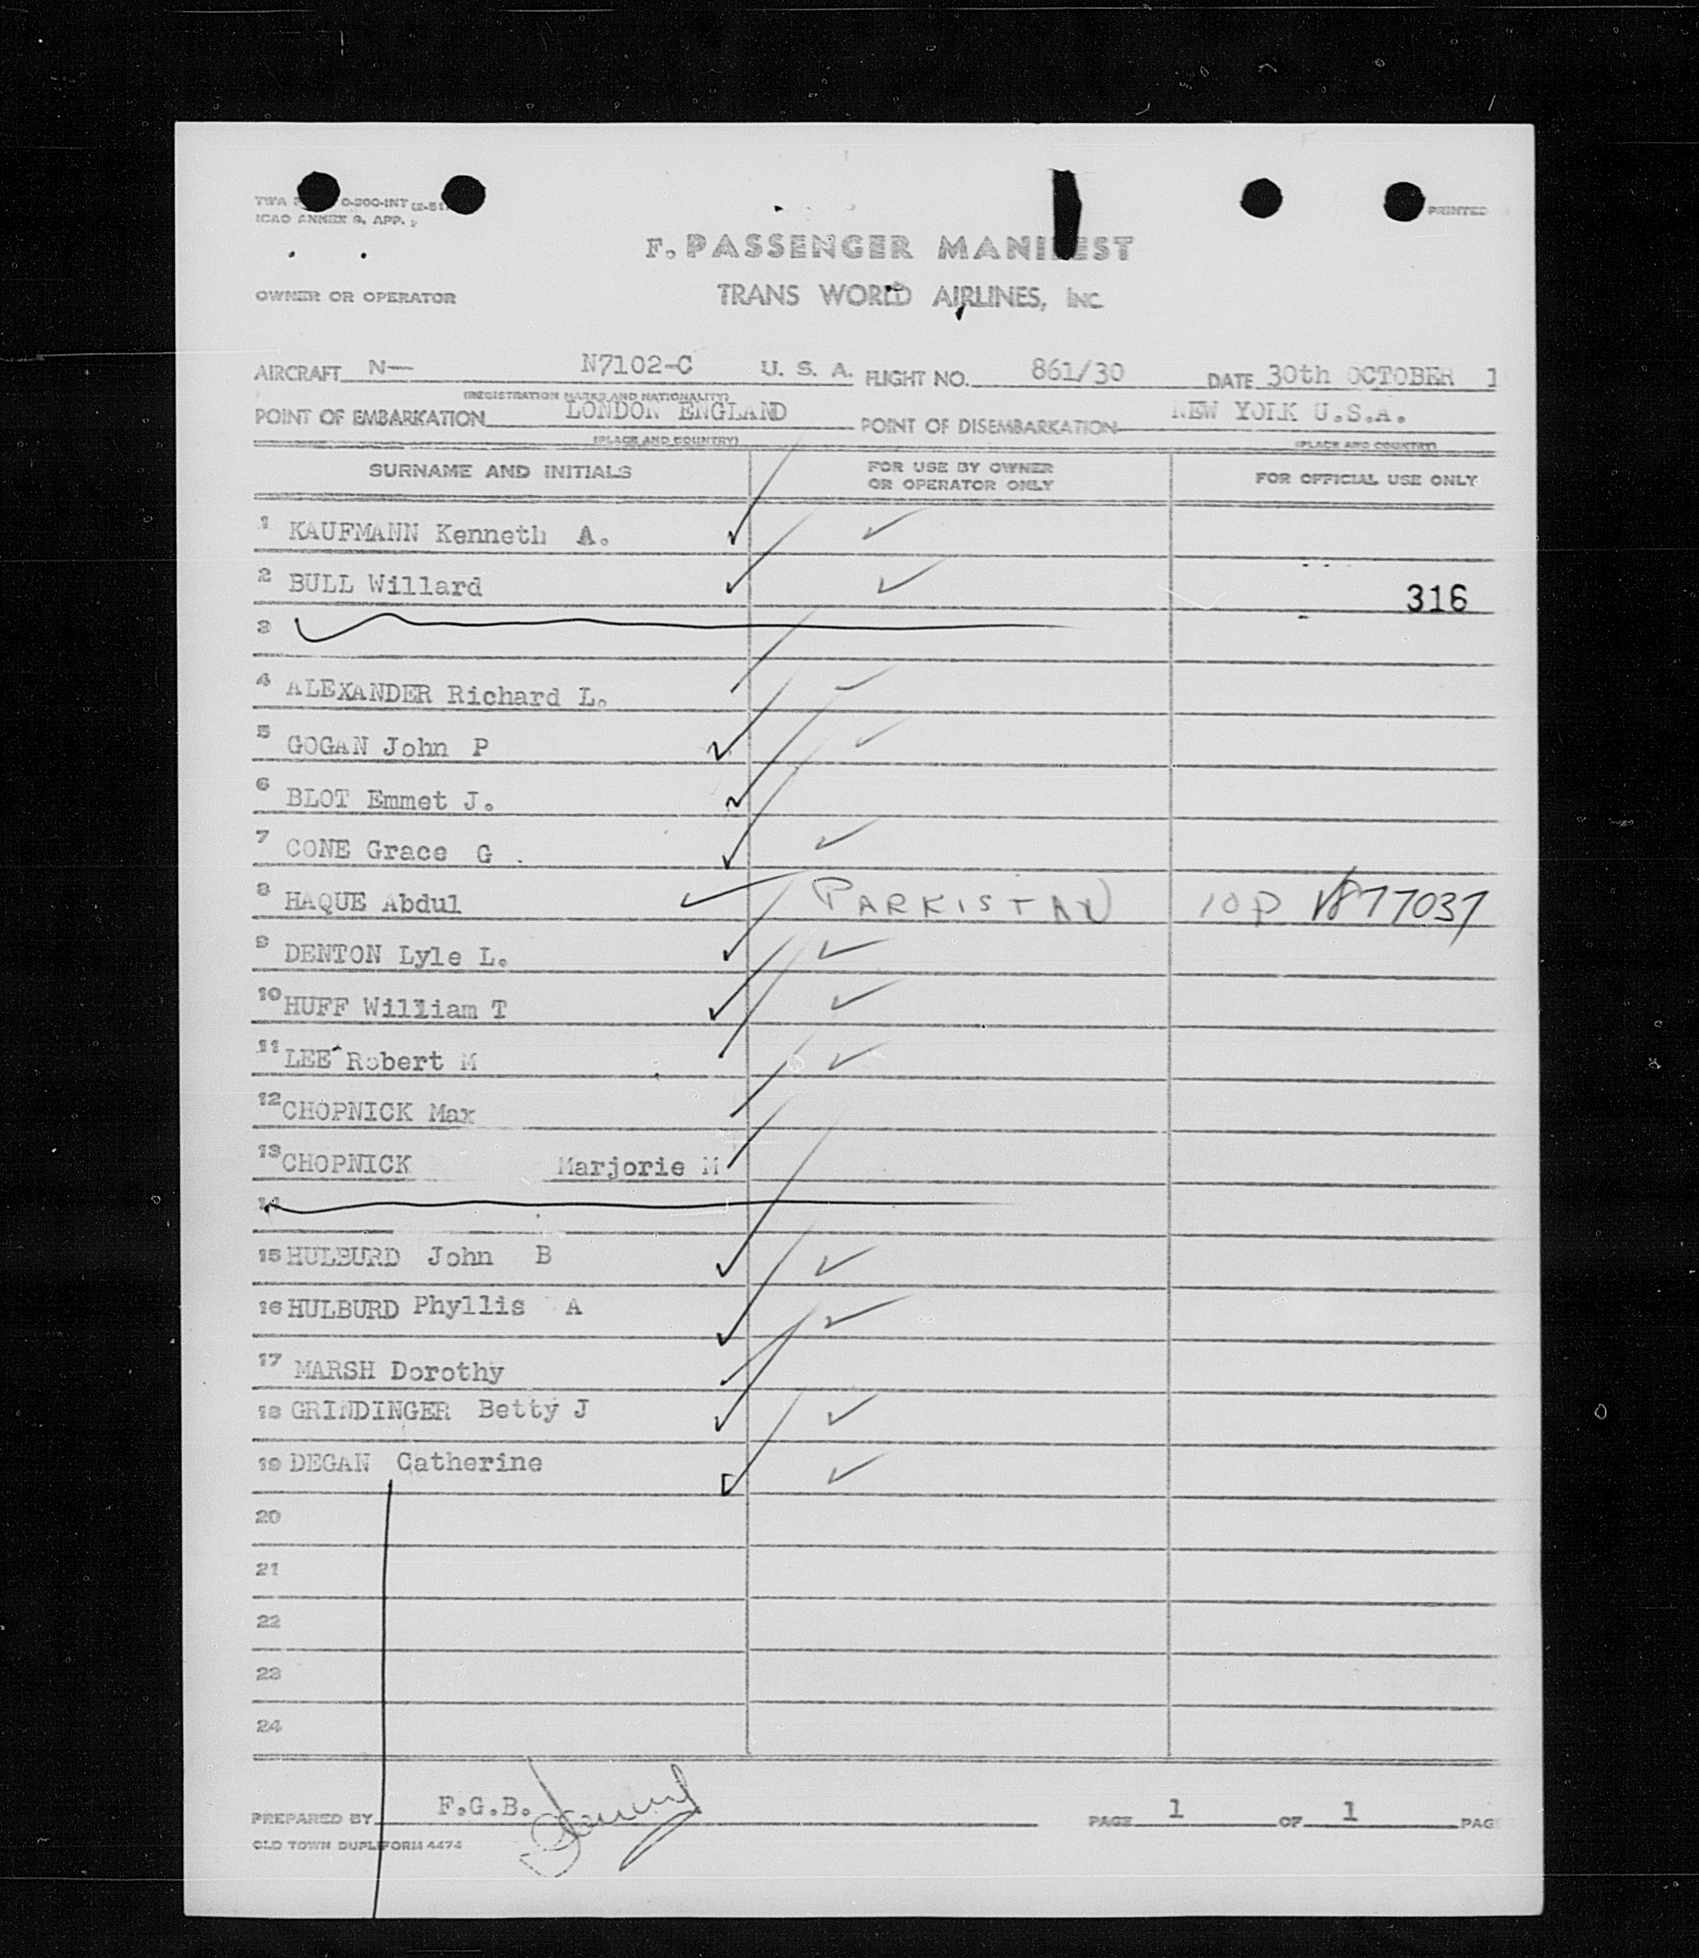 TWA 0-300-INT
PRINTED
ICAO ANNEX 9. APP.
F. PASSENGER MANIFEST
OWNER OR OPERATOR
TRANS WORLD AIRLINES, INC
AIRCRAFT N— N7102-C U. S. A. FLIGHT NO. 861/30 DATE 30th OCTOBER 1
(REGISTRATION MARKS AND NATIONALITY)
POINT OF EMBARKATION LONDON ENGLAND POINT OF DISEMBARKATION NEW YORK U.S.A.
(PLACE AND COUNTRY) (PLACE AND COUNTRY)
SURNAME AND INITIALS FOR USE BY OWNER OR OPERATOR ONLY FOR OFFICIAL USE ONLY
1 KAUFMANN Kenneth A.
2 BULL Willard 316
3
4 ALEXANDER Richard L.
5 GOGAN John P
6 BLOT Emmet J.
7 CONE Grace G .
8 HAQUE Abdul PARKISTAN 10p V877037
9 DENTON Lyle L.
10 HUFF William T
11 LEE Robert M
12 CHOPNICK Max
13 CHOPNICK Marjorie M
14
15 HULBURD John B
16 HULBURD Phyllis A
17 MARSH Dorothy
18 GRINDINGER Betty J
19 DEGAN Catherine
20
21
22
23
24
PREPARED BY F.G.B. PAGE 1 OF 1 PAG
OLD TOWN DUPLIFORM 4474